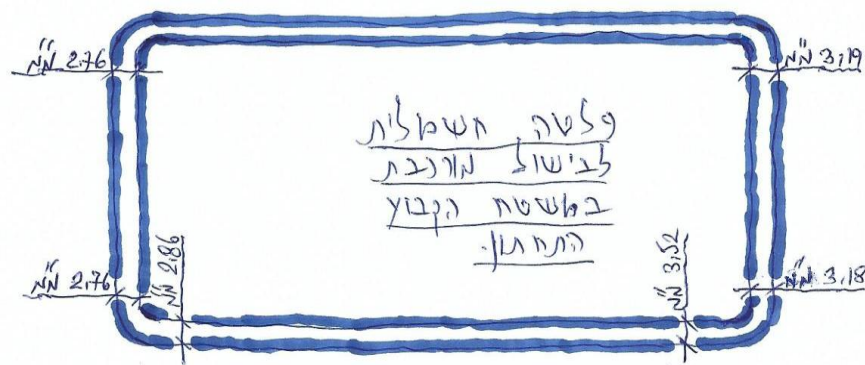 2.76 מ"מ
3,19 מ"מ
פלטה חשמלית
לבישול מורכבת
במשטח הקבוע
התחתון.
2.76 מ"מ
2.86 מ"מ
3.52 מ"מ
3.18 מ"מ